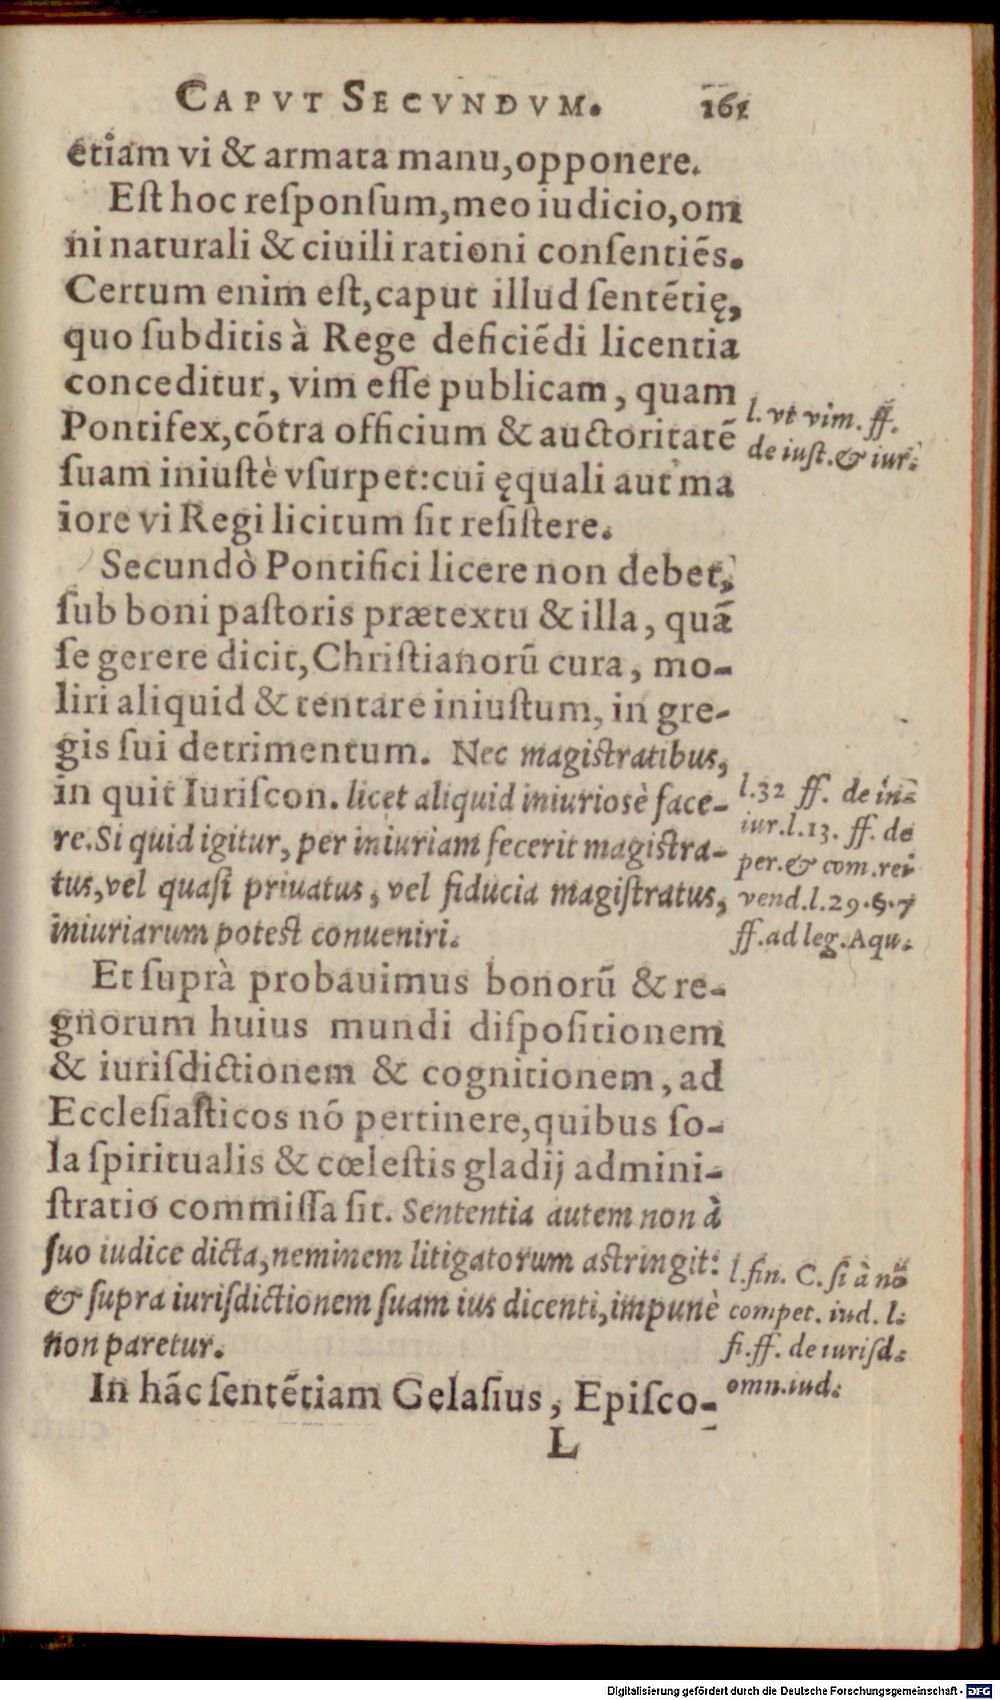 CAPVT SECVNDVM. 161
etiam vi & armata manu, opponere.
Est hoc responsum, meo iudicio, om
ni naturali & ciuili rationi consentiẽs.
Certum enim est, caput illud sentẽtię,
quo subditis à Rege deficiẽdi licentia
conceditur, vim esse publicam, quam
Pontifex, cõtra officium & auctoritatẽ
suam iniustè vsurpet: cui ęquali aut ma
iore vi Regi licitum sit resistere.
l. vt vim. ff.
de iust. & iur.
Secundò Pontifici licere non debet,
sub boni pastoris prætextu & illa, quã
se gerere dicit, Christianorũ cura, mo-
liri aliquid & tentare iniustum, in gre-
gis sui detrimentum. Nec magistratibus,
in quit Iuriscon. licet aliquid iniuriosè face-
re. Si quid igitur, per iniuriam fecerit magistra-
tus, vel quasi priuatus, vel fiducia magistratus,
iniuriarum potest conueniri.
l. 32 ff. de in-
iur. l. 13. ff. de
per. & com. rei
vend. l. 29. §. 7
ff. ad leg. Aqu.
Et suprà probauimus bonorũ & re-
gnorum huius mundi dispositionem
& iurisdictionem & cognitionem, ad
Ecclesiasticos nõ pertinere, quibus so-
la spiritualis & cœlestis gladij admini-
stratio commissa sit. Sententia autem non à
suo iudice dicta, neminem litigatorum astringit:
& supra iurisdictionem suam ius dicenti, impunè
non paretur.
l. fin. C. si à nõ
compet. iud. l.
fi. ff. de iurisd.
omn. iud.
In hãc sentẽtiam Gelasius, Episco-
L
Digitalisierung gefördert durch die Deutsche Forschungsgemeinschaft - DFG